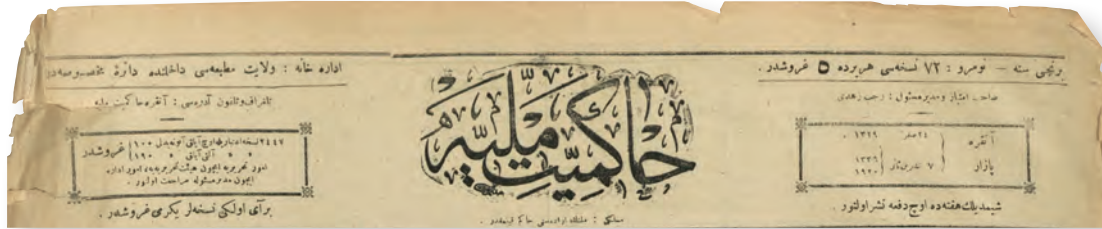 برنجی سنه — نومرو : ٧٢ نسخه‌سی هر یرده ٥ غروشدر .
صاحب امتیاز و مدیر مسئول : رجب زهدی
آنقره
پازار
٢٤ صفر ١٣٣٩
٧ تشرین ثانی
١٣٣٦
١٩٢٠
شیمدیلك هفته‌ده اوچ دفعه نشر اولنور .
حاکمیت ملیه
مسلکی : ملتك اراده‌سنی حاکم قیلمقدر .
اداره خانه : ولایت مطبعه‌سی داخلنده دائرهٔ مخصوصه‌در
تلغراف وتلفون آدره‌سی : آنقره حاکمیت ملیه
اوچ آیلغی ١٠٠ غروشدر
آلتی آیلغی ١٩٠
امور تحریریه ایچون هیئت تحریریه‌یه امور اداره
ایچون مدیر مسئوله مراجعت اولنور .
بر آی اولکی نسخه‌لر یکرمی غروشدر .